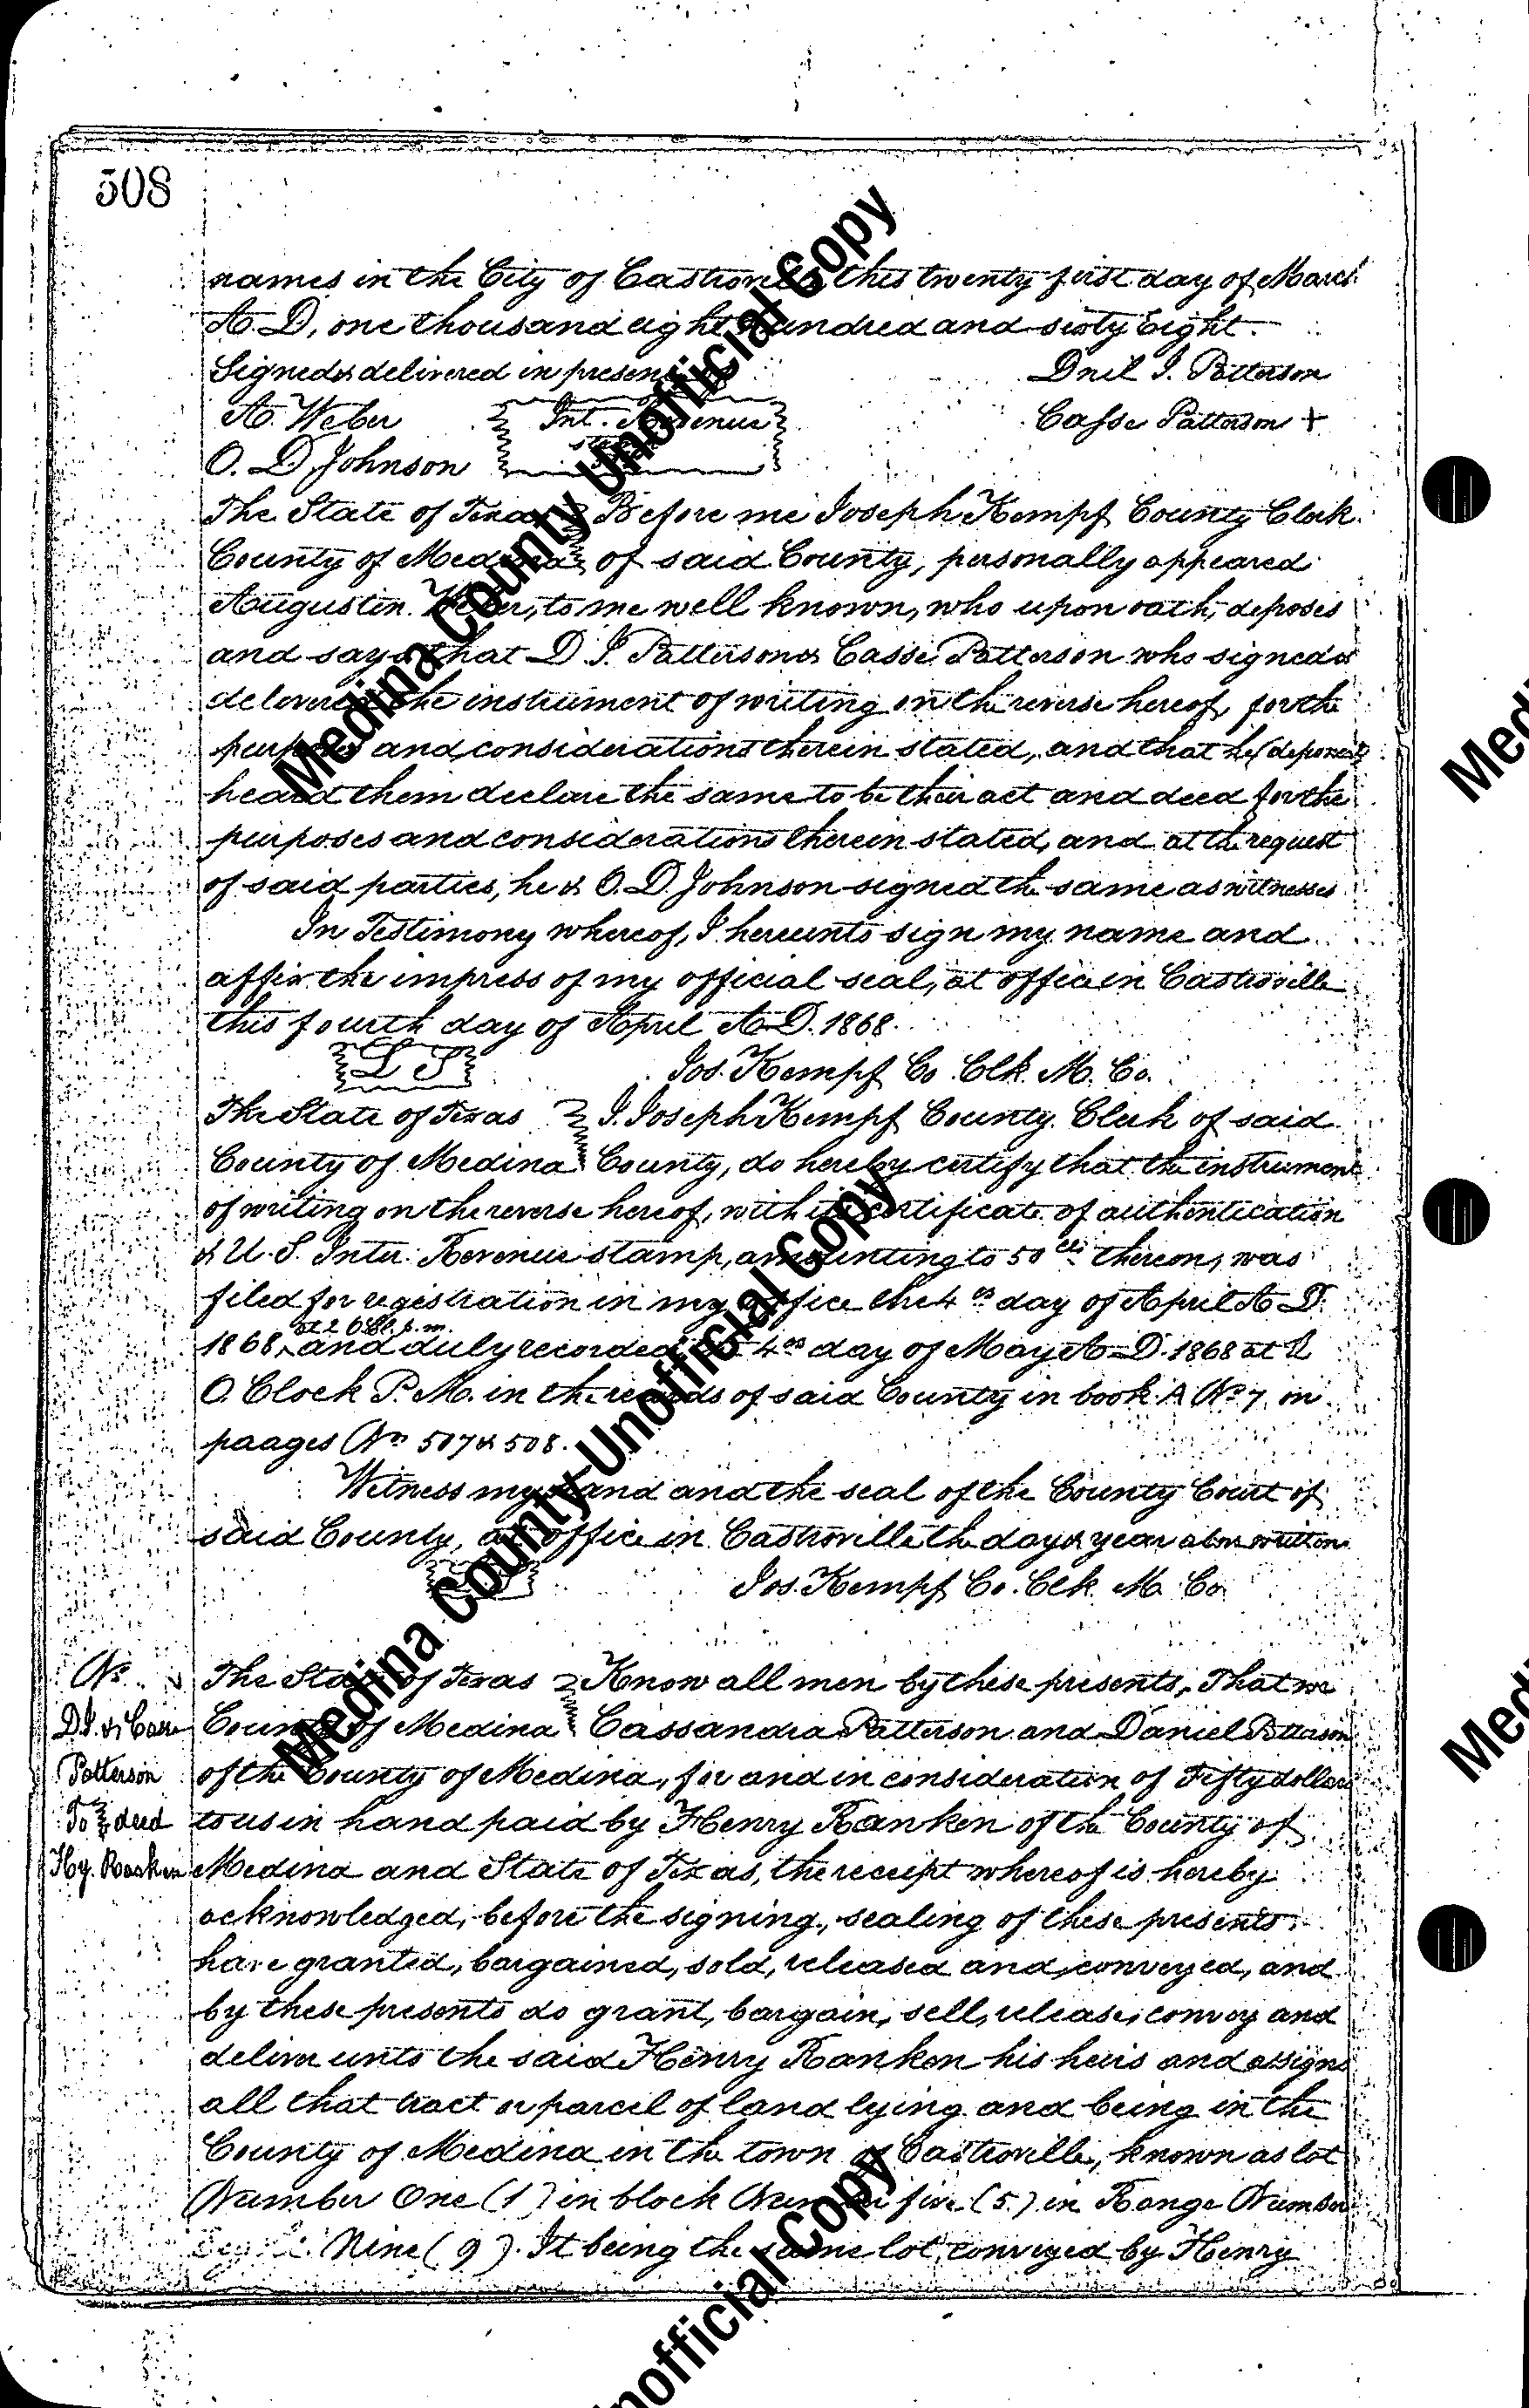 508
names in the City of Castroville this twenty first day of March
A. D, one thousand eight hundred and sixty Eight.
Signed & delivered in presence
Dnil J. Patterson
A. Weber
Int. Revenue
Casse Patterson +
O. D. Johnson
The State of Texas Before me Joseph Kempf County Clerk
County of Medina of said County, personally appeared
Augustin Weber, to me well known, who upon oath, deposes
and says that D J. Patterson & Casse Patterson who signed &
delovered the instrument of writing on the reverse hereof, for the
purposes and considerations therein stated, and that he (deponent)
heard them declare the same to be their act and deed for the
purposes and considerations therein stated, and at the request
of said parties, he & O. D. Johnson signed the same as witnesses
In Testimony whereof, I hereunto sign my name and
affix the impress of my official seal, at office in Castroville
this fourth day of April A. D. 1868.
L S
Jos. Kempf Co. Clk. M. Co.
The State of Texas I. Joseph Kempf County Clerk of said
County of Medina County, do hereby certify that the instrument
of writing on the reverse hereof, with its certificate of authentication
& U. S. Inter. Revenue stamp, amounting to 50 cts thereon, was
filed for registration in my office the 4th day of April A. D.
at 2 O Cl. p. m.
1868, and duly recorded 4th day of May A. D. 1868 at 2
O. Clock P. M. in the records of said County in book A No 7, on
paages No 507 & 508.
Witness my hand and the seal of the County Court of
said County, at office in Castroville the day & year above written
Jos. Kempf Co. Clk. M. Co.
No
The State of Texas Know all men by these presents, That we
D. J. & Casse
County of Medina Cassandra Patterson and Daniel Patterson
Patterson
of the County of Medina, for and in consideration of Fifty dollars
To deed
to us in hand paid by Henry Ranken of the County of
Hy. Ranken
Medina and State of Texas, the receipt whereof is hereby
acknowledged, before the signing, sealing of these presents
have granted, bargained, sold, released and conveyed, and
by these presents do grant, bargain, sell, release, convey and
deliver unto the said Henry Ranken his heirs and assigns
all that tract or parcel of land lying and being in the
County of Medina in the town of Castroville, known as lot
Number One (1) in block Number five (5) in Range Number
Nine (9). It being the same lot conveyed by Henry
Medina County Unofficial Copy
Medina County Unofficial Copy
nofficial Copy
Medi
Medi